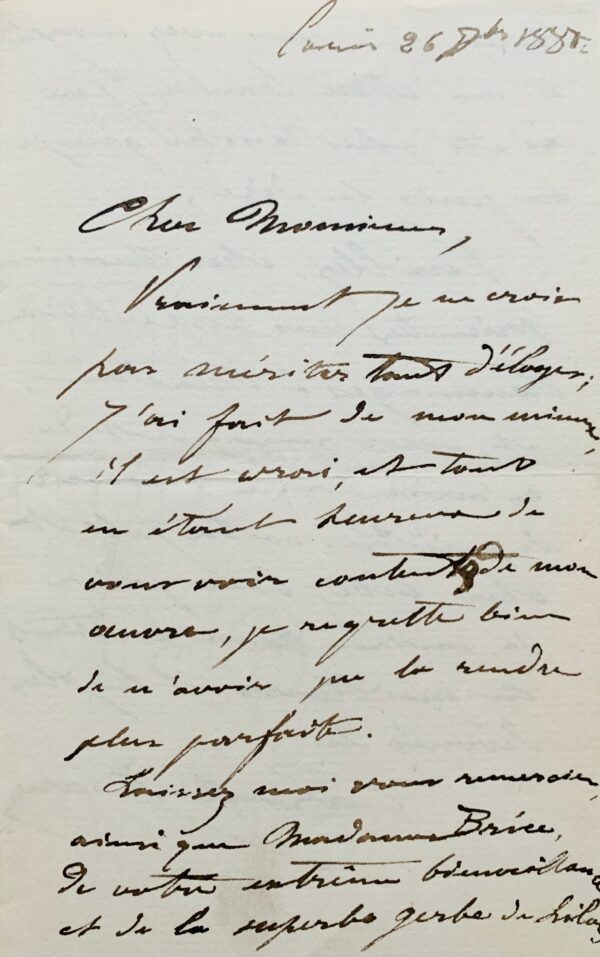 Paris 26 Xbre 188
Cher Monsieur,
Vraiment je ne crois
pas mériter tant d'éloges;
J'ai fait de mon mieux,
il est vrai, et tout
en étant heureux de
vous voir content de mon
œuvre, je regrette bien
de n'avoir pu la rendre
plus parfaite.
Laissez moi vous remercier,
ainsi que Madame Brice,
de votre extrême bienveillance
et de la superbe gerbe de lilas